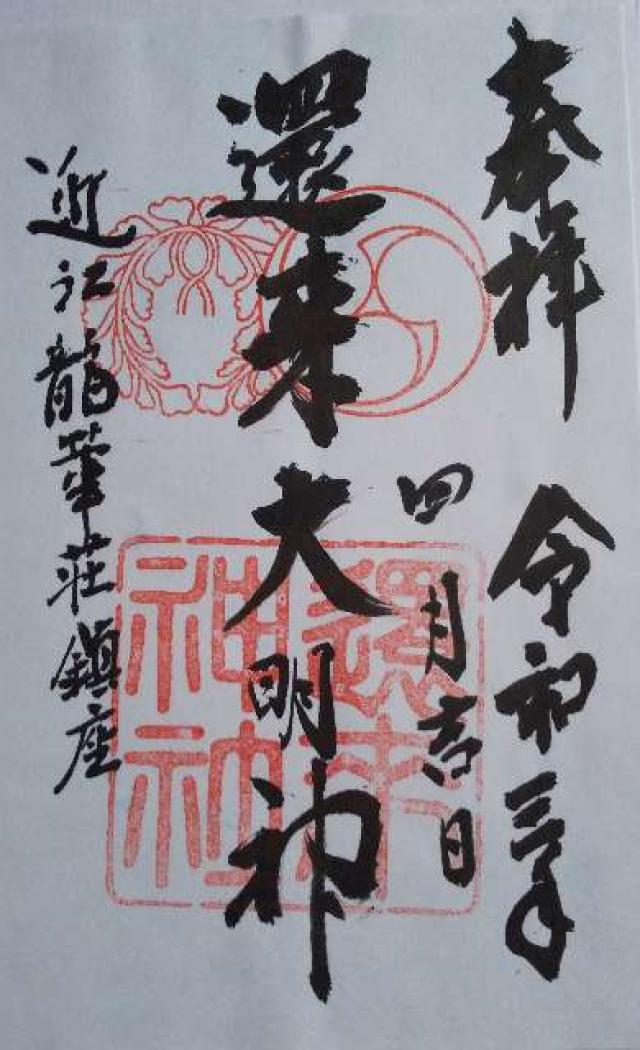 奉拝
令和三年
四月吉日
還来大明神
還来神社
近江龍華荘鎮座